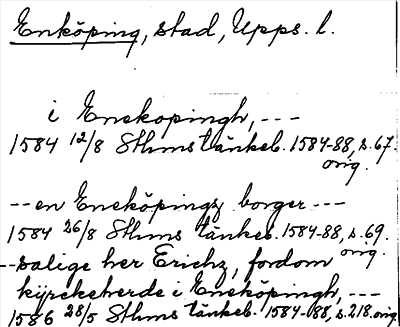 Enköping, stad, Upps. l.
i Enekopingh, ---
1584 12/8 Sthms tänkeb. 1584-88, s. 67.
orig.
-- en Eneköpingz borger ---
1584 26/8 Sthms tänkeb. 1584-88, s. 69.
orig.
-- salige her Erichz, fordom
kyrckeherde i Eneköpingh, ---
1586 28/5 Sthms tänkeb. 1584-88, s. 218. orig.